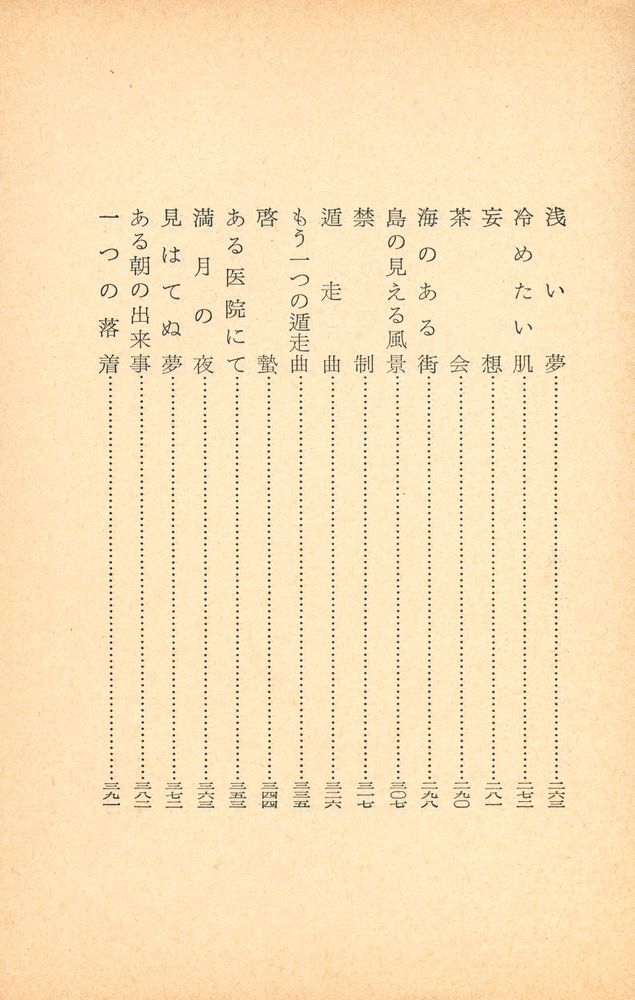 浅い夢……二六三
冷めたい肌……二七二
妄想……二八一
茶会……二九〇
海のある街……二九八
島の見える風景……三〇七
禁制……三一七
遁走曲……三二六
もう一つの遁走曲……三三五
啓蟄……三四四
ある医院にて……三五三
満月の夜……三六三
見はてぬ夢……三七二
ある朝の出来事……三八二
一つの落着……三九一